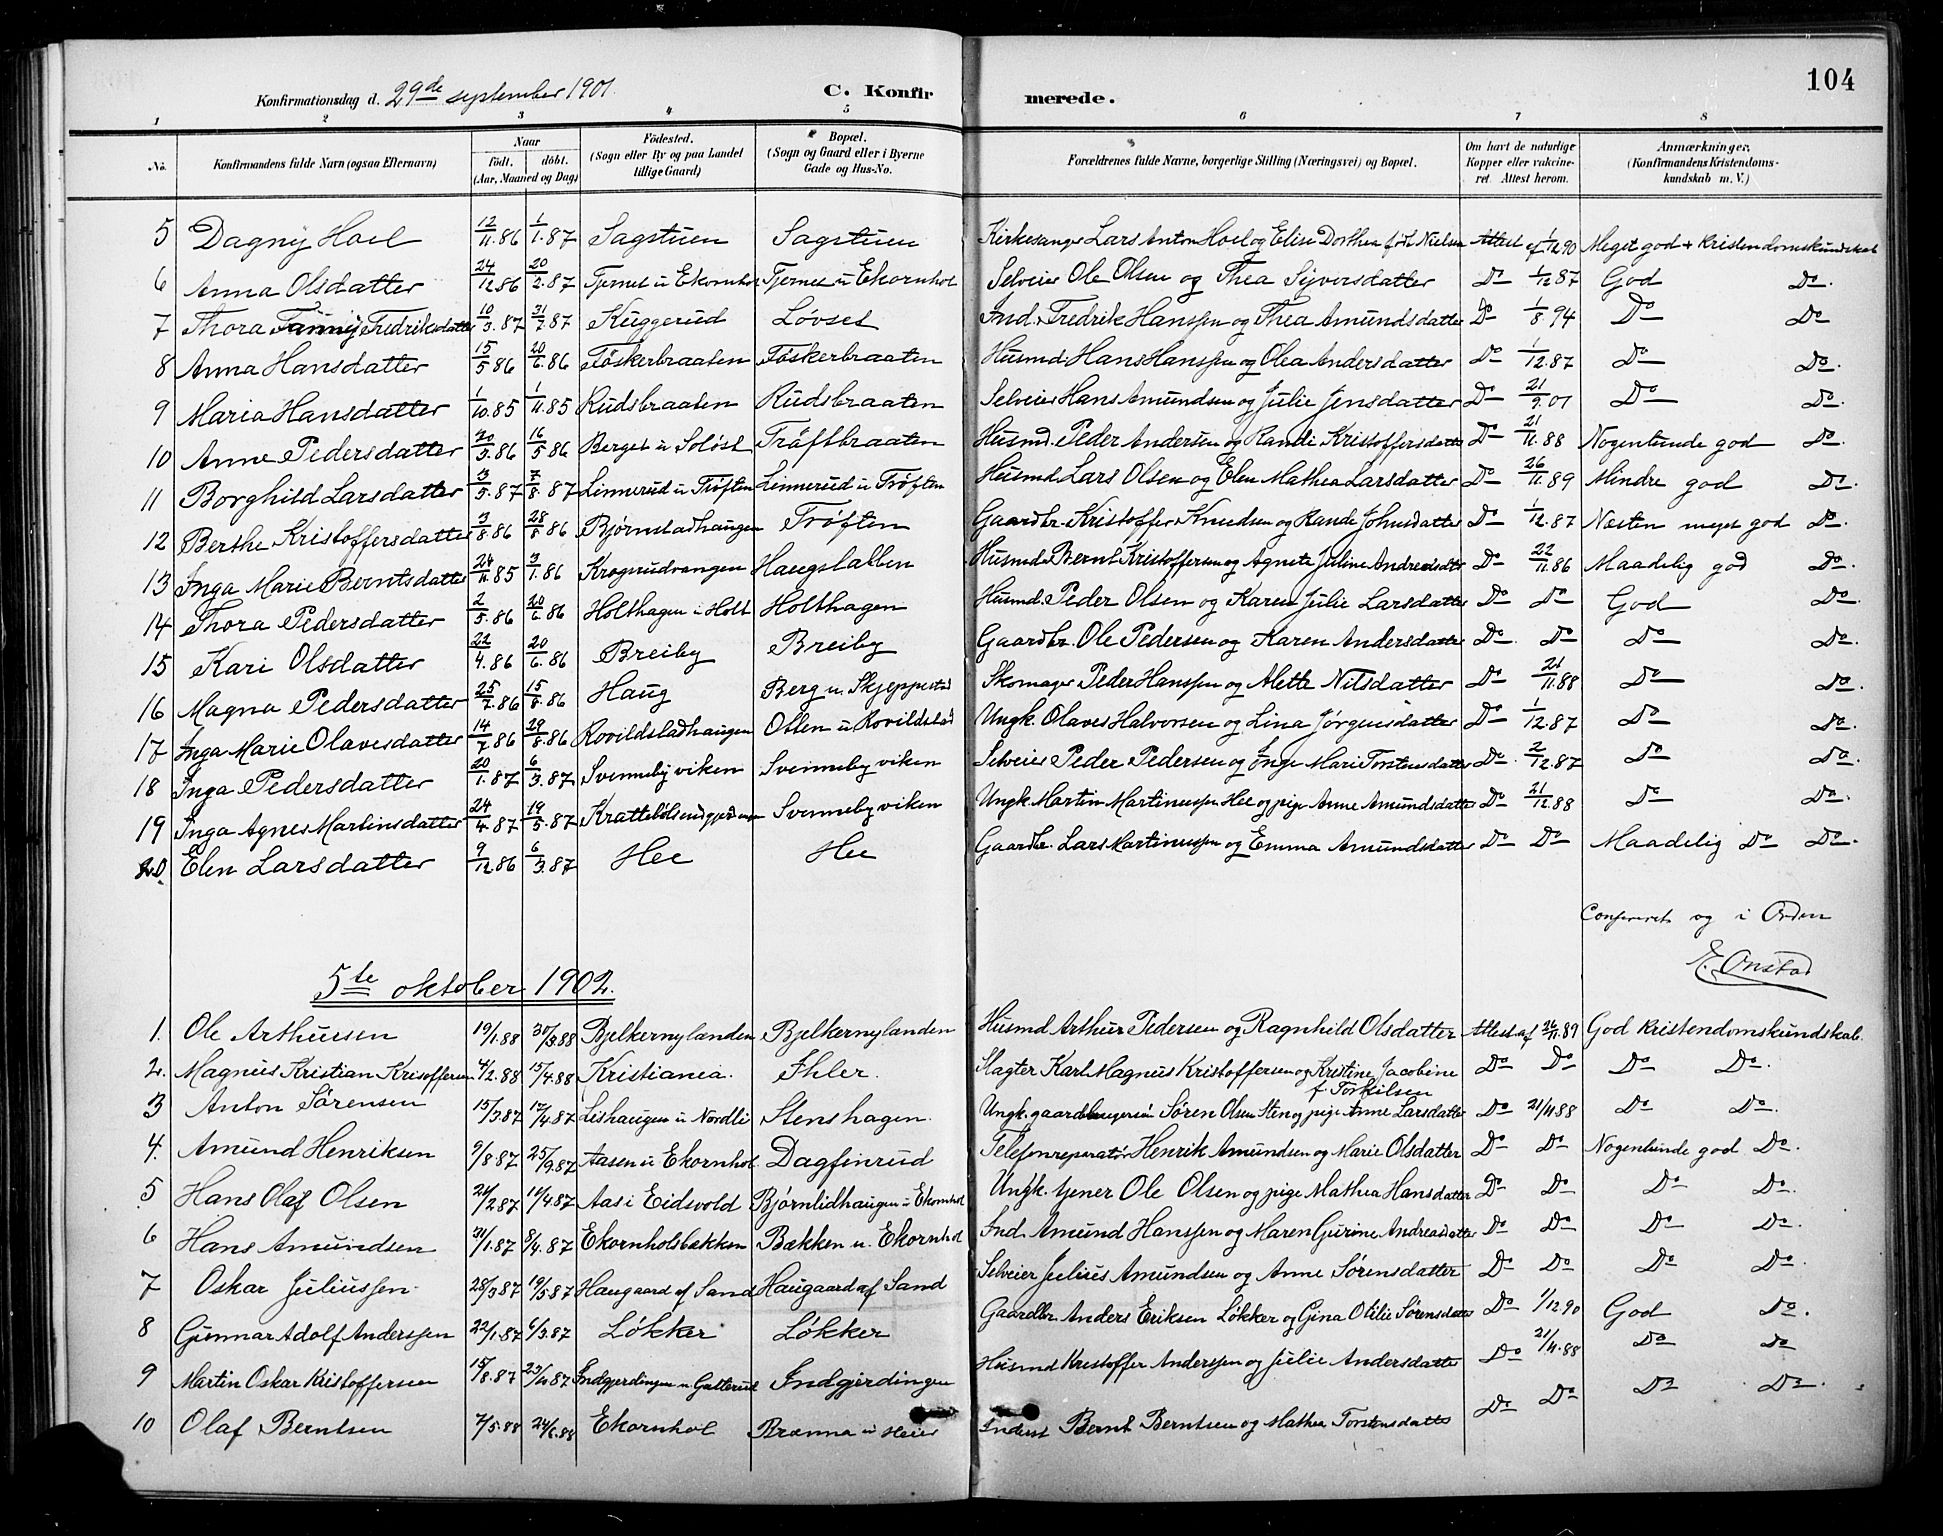 104
Konfirmationsdag d. 29de september 1901. C. Konfirmerede.
1 2 3 4 5 6 7 8
No. Konfirmandens fulde Navn (ogsaa Efternavn) Naar født. døbt. (Aar, Maaned og Dag) Födested. (Sogn eller By og paa Landet tillige Gaard) Bopæl. (Sogn og Gaard eller i Byerne Gade og Hus-No. Forældrenes fulde Navne, borgerlige Stilling (Næringsvei) og Bopæl. Om havt de naturlige Kopper eller vakcineret. Attest herom. Anmærkninger. (Konfirmandens Kristendomskundskab m. V.)
5 Dagny Hoel 12/11.86 1/1.87 Sagstuen Sagstuen Kirkesanger Lars Anton Hoel og Elise Dorthea født Nielsen Attest af 1/12 90 Meget god Kristendomskundskab
6 Anna Olsdatter 24/12.86 20/2.87 Tjernet u Ekornhol Tjernet u Ekornhol Selveier Ole Olsen og Thea Syversdatter Do 1/12 87 God Do.
7 Thora Fanny Fredriksdatter 10/3.87 31/7.87 Kuggerud Løvset Ind. Fredrik Hanssen og Thea Amundsdatter Do 1/8.94 Do Do
8 Anna Hansdatter 15/5 86 20/6.86 Föskerbraaten Föskerbraaten Husmd. Hans Hanssen og Olea Andersdatter Do 1/12.87 Do Do.
9 Maria Hansdatter 1/10.85 1/11.85 Rudsbraaten Rudsbraaten Selveier Hans Amundsen og Julie Jensdatter Do 21/9.01 Do Do.
10 Anne Pedersdatter 20/3.86 16/5 86 Berget u Soløst Tröftbraaten Husmd. Peder Andersen og Randi Kristoffersdatter Do 21/11.88 Nogenlunde god Do.
11 Borghild Larsdatter 3/5.87 7/8.87 Linnerud u Trøften Linnerud u Trøften Husmd Lars Olsen og Elen Mathea Larsdatter Do 26/11.89 Mindre god Do.
12 Berthe Kristoffersdatter 3/8.86 28/8 86 Bjørnstadhaugen Trøften Gaardbr. Kristoffer Knudsen og Rande Johnsdatter Do 1/12.87 Næsten meget god Do.
13 Inga Marie Berntsdatter 24/11.85 3/1.86 Krogsrudvangen Haugslakken Husmd. Bernt Kristoffersen og Agnete Juline Andreasdtr Do 22/11.86 Maadelig god Do.
14 Thora Pedersdatter 2/5.86 20/6.86 Holthagen i Holt Holthagen Husmd. Peder Olsen og Karen Julie Larsdatter Do Do God Do.
15 Kari Olsdatter 22/4.86 20/6.86 Breiby Breiby Gaardbr. Ole Pedersen og Karen Andersdatter Do. Do Do Do.
16 Magna Pedersdatter 25/7.86 15/8.86 Haug Berg u. Skjeppestad Skomager Peder Hanssen og Alette Nilsdatter Do 21/11.88 Do Do.
17 Inga Marie Olavesdatter 14/7 86 29/8.86 Rovildstadhaugen Osten u Rovildstad Ungk. Olaves Halvorsen og Lina Jørgensdatter Do 1/12.87 Do Do.
18 Inga Pedersdatter 20/1.87 6/3.87 Svenneby viken Svenneby viken Selveier Peder Pedersen og Inge Mari Torstensdatter Do. 2/12.87 Do Do.
19 Inga Agnes Martinsdatter 24/4.87 19/5.87 Krattebölsendgjerdingen Svenneby viken Ungk. Martin Martinussen Hee og pige Anne Amundsdatter Do 21/12.88 Do Do.
20 Elen Larsdatter 9/12.86 6/3.87 Hee Hee Gaardbr. Lars Martinussen og Emma Amundsdatter Do Do Maadelig Do Do.
Confereret og i Orden
E. Onstad
5te oktober 1902.
1. Ole Arthursen 19/1.88 30/3.88 Bjelkernylanden Bjelkernylanden Husmd Arthur Pedersen og Ragnhild Olsdatter Attest af 26/11.89 God kristendomskundskab.
2. Magnus Kristian Kristoffersen 4/2.88 15/4.88 Kristiania. Ihler. Slagter Karl Magnus Kristoffersen og Kristine Jacobine f. Torkilsen Do Do Do Do.
3 Anton Sørensen 15/3.87 17/4.87 Lishaugen u Nordli Stenshagen. Ungk. gaardbrugersøn Sören Olsen Sten og pige Anne Larsdatter Do 21/11 88 Do Do.
4. Amund Henriksen 9/8.87 25/9.87 Aasen u Ekornhol Dagfinrud Telefonreparatør Henrik Amundsen og Marie Olsdatter Do Do Nogenlunde god Do.
5 Hans Olaf Olsen 26/2.87 11/4.87 Aas i Eidsvold Bjørnlidhaugen u Ekornhol Ungk. tjener Ole Olsen og pige Mathea Hansdatter Do Do Do Do.
6 Hans Amundsen 31/1.87 8/4.87 Ekornholsbakken Bækken u. Ekornhol Ind. Amund Hanssen og Maren Gurine Andreasdatter Do Do Do Do.
7 Oskar Juliussen 28/3 87 19/5 87 Haugaard af Sand Haugaard af Sand Selveier Julius Amundsen og Anne Sørensdatter Do Do Do Do.
8 Gunnar Adolf Anderssen 22/1.87 6/3.87 Løkker Løkker Gaardbr. Anders Eriksen Løkker og Gina Otilie Sörensdatter Do 1/12 90 God Do.
9 Martin Oskar Kristoffersen 15/8.87 23/11 87 Indgjerdingen u Galterud Indgjerdingen Husmd Kristoffer Anderssen og Julie Andersdatter Do 21/11.88 Do Do
10 Olaf Berntsen 7/5.88 24/6.88 Ekornhol Brænna u Heier Inderst Bernt Berntsen og Mathea Torstensdatter Do Do Do Do.